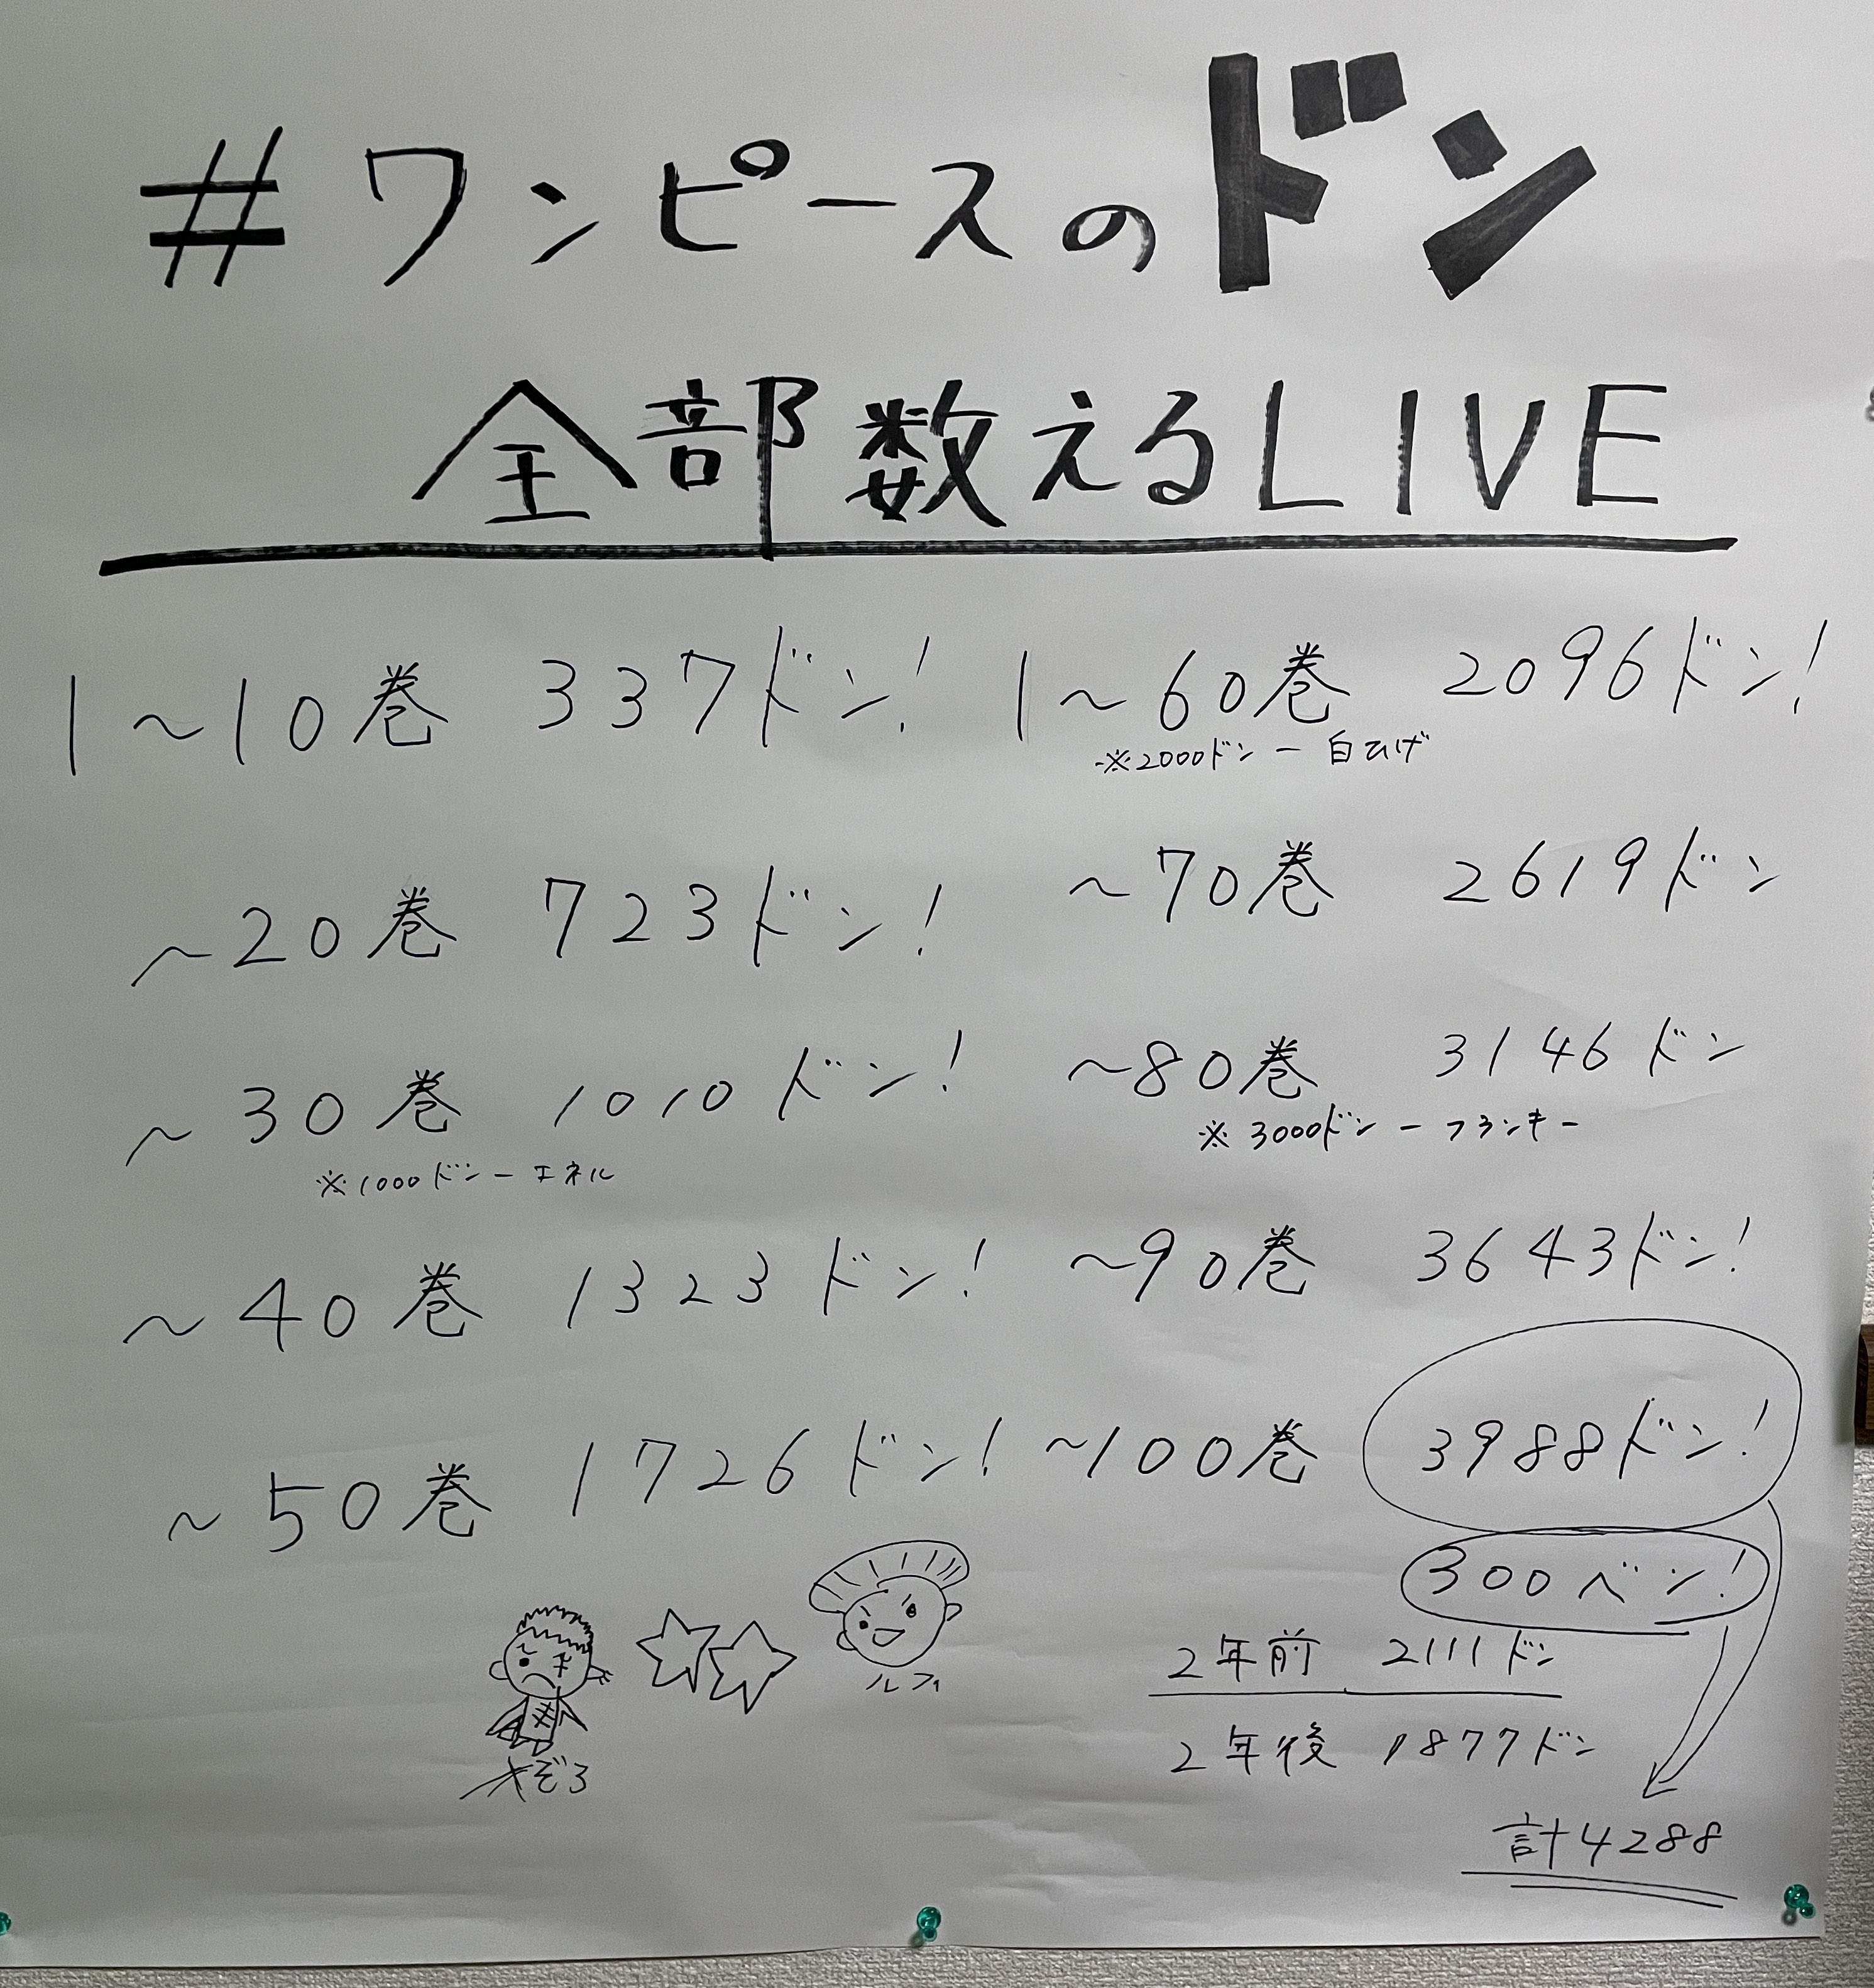 #ワンピースのドン
全部数えるLIVE
1~10巻 337ドン!
~20巻 723ドン!
~30巻 1010ドン!
※1000ドンーエネル
~40巻 1323ドン!
~50巻 1726ドン!
1~60巻 2096ドン!
※2000ドンー白ひげ
~70巻 2619ドン
~80巻 3146ドン
※3000ドンーフランキー
~90巻 3643ドン!
~100巻 3988ドン!
300ベン!
2年前 2111ドン
2年後 1877ドン
計4288
ぞろ
ルフィ